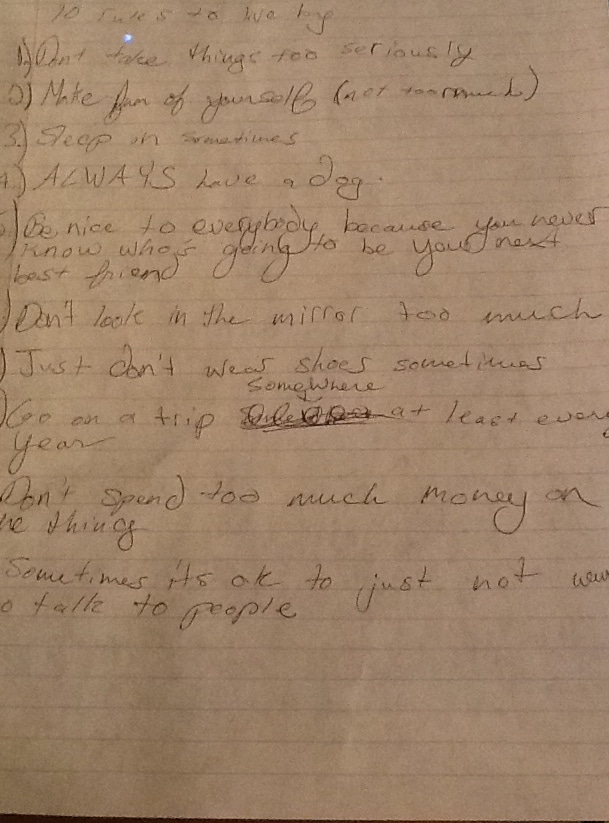 10 rules to live by
1) Dont take things too seriously
2) Make fun of yourself (not too much)
3.) Sleep in sometimes
4.) ALWAYS have a dog.
) Be nice to everybody because you never
know who's going to be your next
best friend
) Don't look in the mirror too much
) Just don't wear shoes sometimes
somewhere
) Go on a trip at least every
year
Don't spend too much money on
ne thing
Sometimes it's ok to just not wan
o talk to people